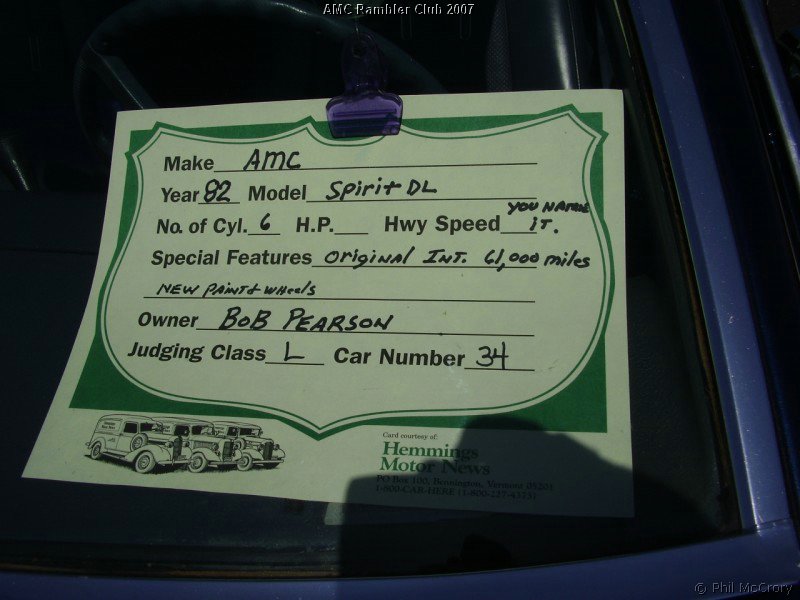 AMC Rambler Club 2007
Make AMC
Year 82 Model Spirit DL
No. of Cyl. 6 H.P. Hwy Speed YOU NAME IT.
Special Features Original INT. 61,000 miles
NEW PAINT & WHeels
Owner BOB PEARSON
Judging Class L Car Number 34
Card courtesy of:
Hemmings
Motor News
PO Box 100, Bennington, Vermont 05201
1-800-CAR-HERE (1-800-227-4373)
© Phil McCrory